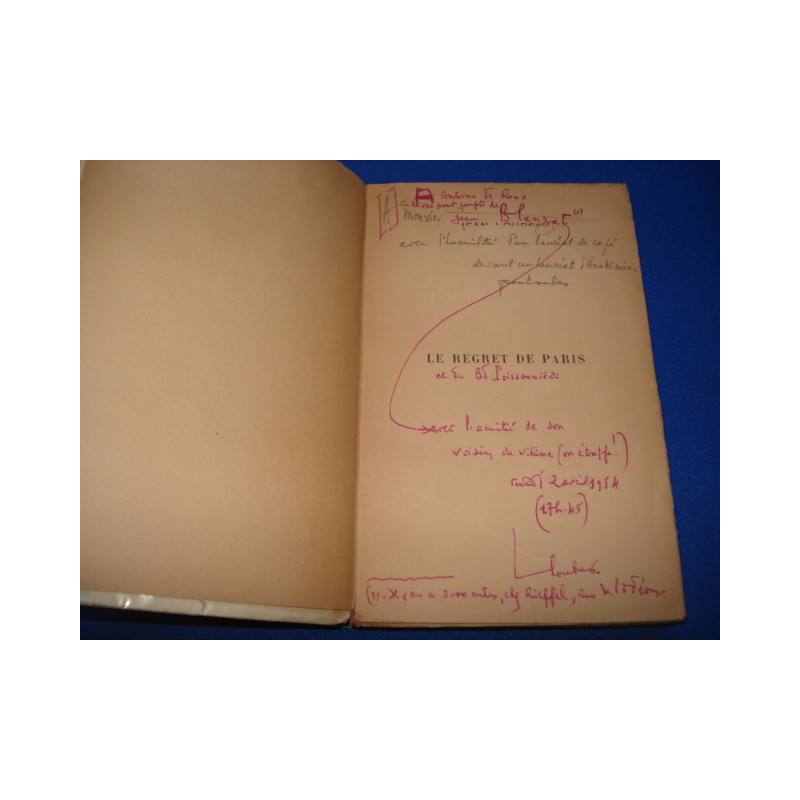 [A]
A
Monsieur Jean Blanzat (1)
JEAN LOUBES
avec l'humilité d'un lauréat de café
devant un lauréat d'Académie.
Jean Loubes
LE REGRET DE PARIS
et du Bd Poissonnière
avec l'amitié de son
voisin de vitrine (on étouffe!)
2 avril 1954
(17h.45)
Loubes.
(1) - Il y en a 3000 autres, chez Rieffel, rue de l'Odéon.